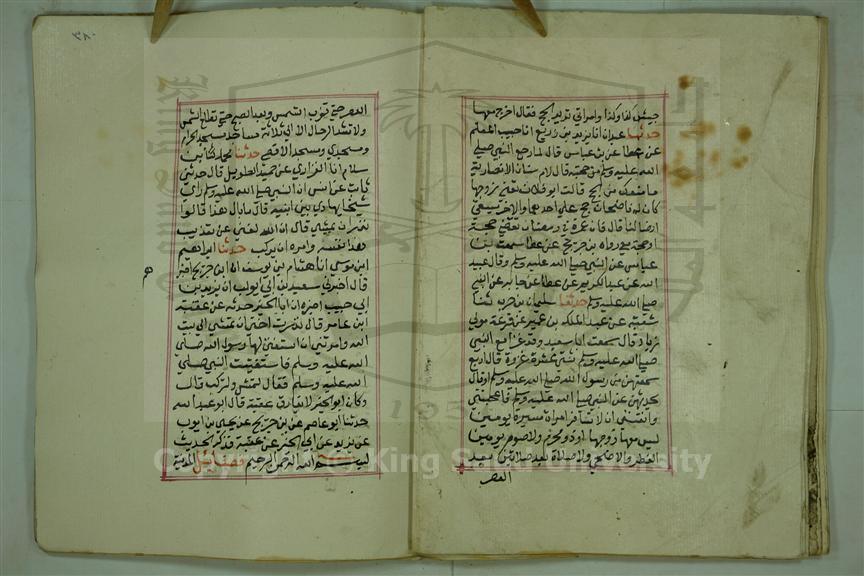 جيش كذا وكذا وامراتي تريد الحج فقال اخرج معها
حدثنا عبدان انا يزيد بن زريع انا حبيب المعلم
عن عطا عن بن عباس قال لما رجع النبي صلى
الله عليه وسلم من حجته قال لام سنان الانصارية
ما منعك من الحج قالت ابو فلان تعني زوجها
كان له ناضحان حج على احدهما والاخر يسقي
ارضا لنا قال فان عمرة في رمضان تقضي حجة
او حجة معي رواه بن جريج عن عطا سمعت بن
عباس عن النبي صلى الله عليه وسلم وقال عبيد
الله عن عبد الكريم عن عطا عن جابر عن النبي
صلى الله عليه وسلم حدثنا سليمان بن حرب ثنا
شعبة عن عبد الملك بن عمير عن قزعة مولى
زياد قال سمعت ابا سعيد وقد غزا مع النبي
صلى الله عليه وسلم ثنتي عشرة غزوة قال اربع
سمعتهن من رسول الله صلى الله عليه وسلم او قال
يحدثهن عن النبي صلى الله عليه وسلم فاعجبنني
وانقنني ان لا تسافر امراة مسيرة يومين
ليس معها زوجها او ذو محرم ولا صوم يومين
الفطر والاضحى ولا صلاة بعد صلاتين بعد
العصر
٣٨٠
العصر حتى تغرب الشمس وبعد الصبح حتى تطلع الشمس
ولا تشد الرحال الا الى ثلاثة مساجد مسجد الحرام
ومسجدي ومسجد الاقصى حدثنا محمد بن
سلام انا الفزاري عن حميد الطويل قال حدثني
ثابت عن انس ان النبي صلى الله عليه وسلم راى
شيخا يهادى بين ابنيه قال ما بال هذا قالوا
نذر ان يمشي قال ان الله لغني عن تعذيب
هذا نفسه وامره ان يركب حدثنا ابراهيم
ابن موسى انا هشام بن يوسف ان ابن جريج اخبر
قال اخبرني سعيد بن ابي ايوب ان يزيد بن
ابي حبيب اخبره ان ابا الخير حدثه عن عقبة
ابن عامر قال نذرت اختي ان تمشي الى بيت
الله وامرتني ان استفتي لها رسول الله صلى
الله عليه وسلم فاستفتيت النبي صلى
الله عليه وسلم فقال لتمش ولتركب قال
وكان ابو الخير لا يفارق عقبة قال ابو عبد الله
حدثنا ابو عاصم عن ابن جريج عن يحيى بن ايوب
عن يزيد عن ابي الخير عن عقبة فذكر الحديث
بسم الله الرحمن الرحيم فضائل المدينة
Copyright © King Saud University